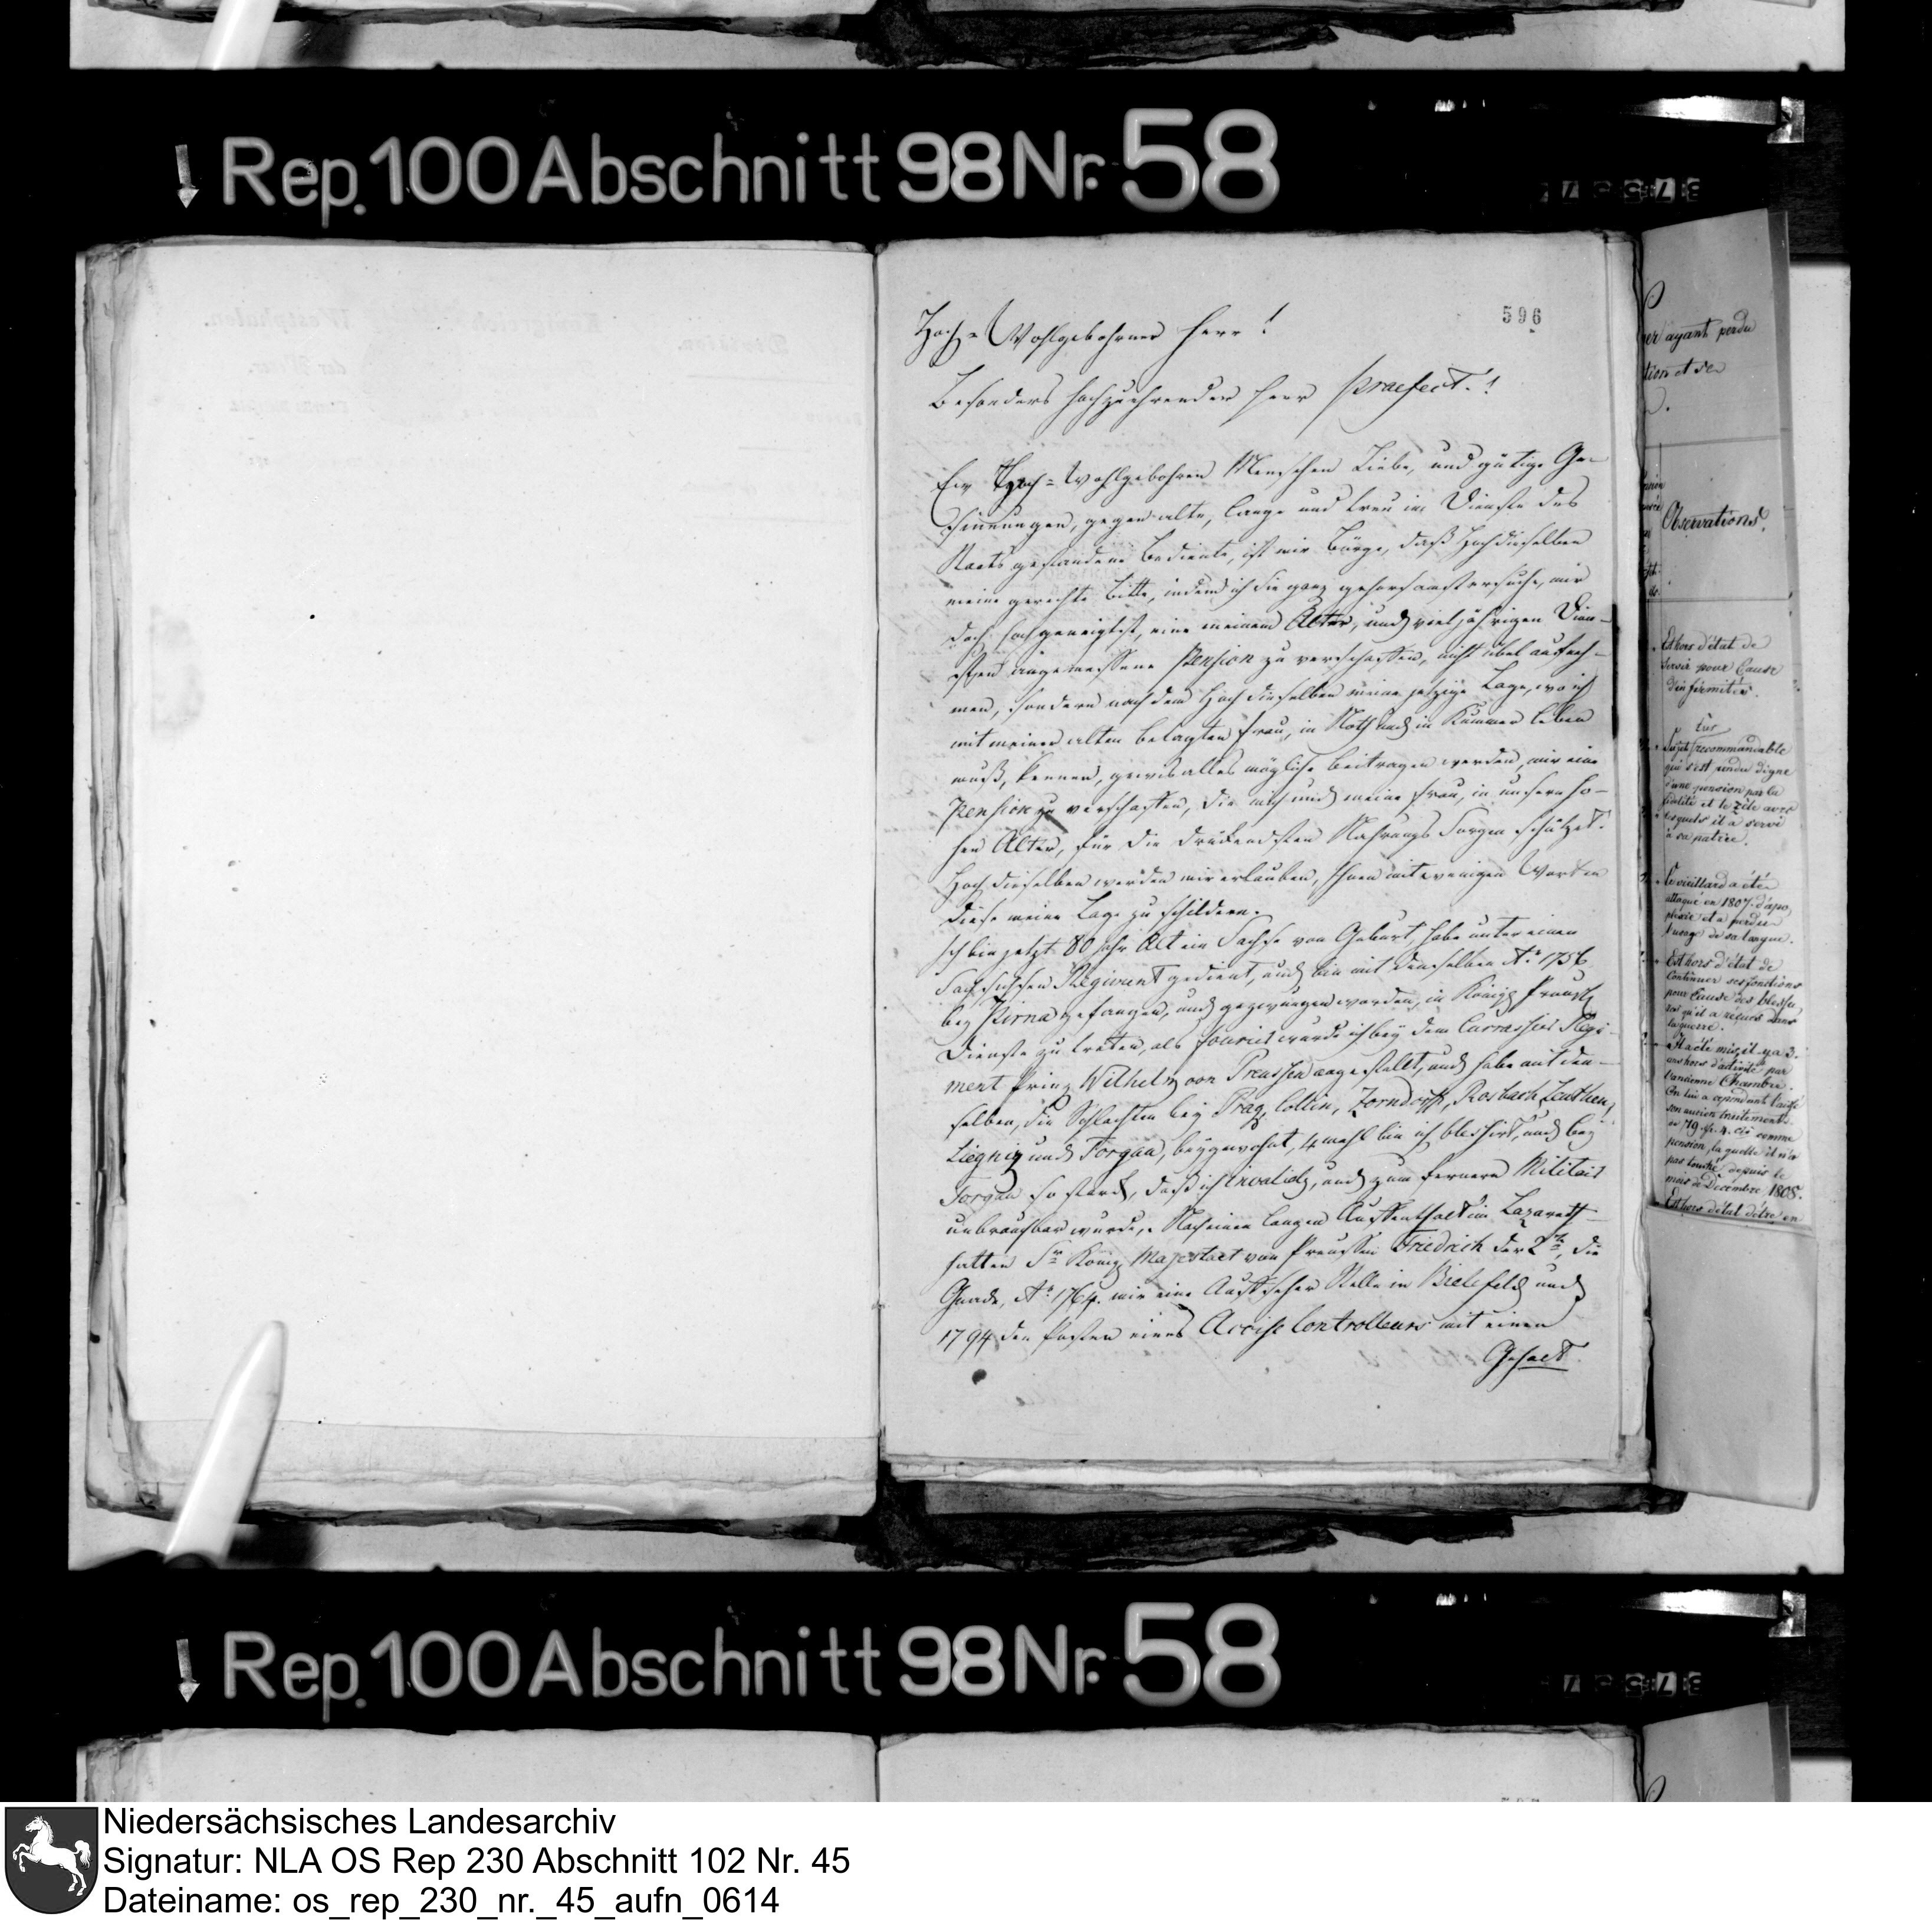 Rep. 100 Abschnitt 98 Nr. 58
596
Hoch-Wohlgebohrner Herr!
Besonders hochzuehrender Herr Praefect.!
Ew Hoch-Wohlgebohren Menschen Liebe, und gütige Ge-
sinnungen, gegen alte, lange und treu im Dienste des
Staats gestandene Bediente, ist mir Bürge, daß Hochdieselben
meine gerechte Bitte, indem ich Sie ganz gehorsamst ersuche, mir
doch hochgeneigtest, eine meinem Alter, und vieljährigen Dien-
sten angemessene Pension zu verschaffen, nicht übel aufneh-
men, sondern nachdem Hochdieselben meine jetzige Lage, wo ich
mit meiner alten betagten Frau, in Noth und in Kummer leben
muß, kennen, gewis alles mögliche beitragen werden, mir eine
Pension zu verschaffen, die mich und meine Frau, in unsern ho-
hen Alter, für die drükendsten Nahrungs Sorgen schützet.
Hochdieselben werden mir erlauben, Ihnen mit wenigen Worten
diese meine Lage zu schildern.
Ich bin jetzt 80 Jahr Alt ein Sachse von Geburt, habe unter einem
Regiment gedient, und bin mit demselben Ao. 1756
bey Pirna gefangen, und gezwungen worden, in Königl Preuss
Dienste zu treten, als Fourier wurde ich bey dem Currassier Regi-
ment Prinz Wilhelm von Preussen angestellt, und habe mit dem-
selben, die Schlachten bey Prag, Collin, Zorndorff, Rosbach Leuthen,
Liegnig und Torgau, beygewohnt, 4 mahl bin ich blessirt, und bey
Torgau so stark, daß ich invalide, und zum fernern Militair
unbrauchbar wurde. Nach einem langen Auffenthalt im Lazareth
hatten Sr König Majestaet von Preussen Friedrich der 2te, die
Gnade, Ao. 1764. mir eine Aufseher Stelle in Bielefeld und
1794 den Posten eines Accise Controlleurs mit einem
Gehalt
ayant perdu
et sa
Observations.
Est hors d'état de
servir pour Cause
d'infirmités.
Sujet recommandable
qui s'est rendu digne
d'une pension par la
fidélité et le zèle avec
lesquels il a servi
à sa patrie.
Le vieillard a été
attaqué en 1807. d'apo-
plexie et a perdu
l'usage de sa langue.
Est hors d'état de
Continuer ses fonctions
pour Cause des blessu-
res qu'il a reçues dans
la guerre.
Il a été mis, il y a 3.
ans hors d'activité par
l'ancienne Chambre.
On lui a cependant laissé
son ancien traitement
de 719. fr. 4. cs comme
pension, laquelle il n'a
pas touché, depuis le
mois de Décembre 1808.
Est hors d'état d'être en
Rep. 100 Abschnitt 98 Nr. 58
Niedersächsisches Landesarchiv
Signatur: NLA OS Rep 230 Abschnitt 102 Nr. 45
Dateiname: os_rep_230_nr._45_aufn_0614